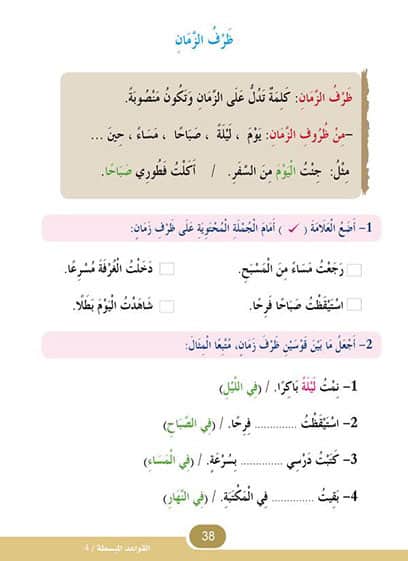 ظَرْفُ الزَّمَانِ
ظَرْفُ الزَّمَانِ: كَلِمَةٌ تَدُلُّ عَلَى الزَّمَانِ وَتَكُونُ مَنْصُوبَةً.
–مِنْ ظُرُوفِ الزَّمَانِ: يَوْمَ ، لَيْلَةً ، صَبَاحًا ، مَسَاءً ، حِينَ ...
مِثْلُ: جِئْتُ الْيَوْمَ مِنَ السَّفَرِ. / أَكَلْتُ فَطُورِي صَبَاحًا.
1– أَضَعُ الْعَلَامَةَ ( ✓ ) أَمَامَ الْجُمْلَةِ الْمُحْتَوِيَةِ عَلَى ظَرْفِ زَمَانٍ:
رَجَعْتُ مَسَاءً مِنَ الْمَسْبَحِ. دَخَلْتُ الْغُرْفَةَ مُسْرِعًا.
اسْتَيْقَظْتُ صَبَاحًا فَرِحًا. شَاهَدْتُ الْيَوْمَ بَطَلًا.
2– أَجْعَلُ مَا بَيْنَ قَوْسَيْنِ ظَرْفَ زَمَانٍ، مُتَّبِعًا الْمِثَالَ:
1– نِمْتُ لَيْلَةً بَاكِرًا. / (فِي اللَّيْلِ)
2– اسْتَيْقَظْتُ .............. فَرِحًا. / (فِي الصَّبَاحِ)
3– كَتَبْتُ دَرْسِي .............. بِسُرْعَةٍ. / (فِي الْمَسَاءِ)
4– بَقِيتُ .............. فِي الْمَكْتَبَةِ. / (فِي النَّهَارِ)
38
القواعد المبسطة / 4